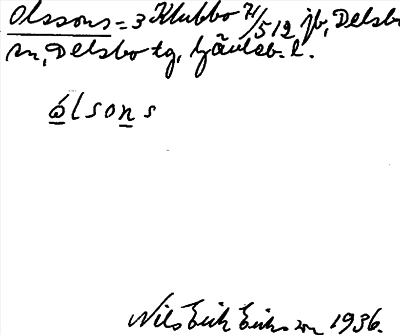 Olssons = 3 Klubbo 7/512 jb, Delsbo
sn, Delsbo tg, Gävleb. l.
ó̲lson̲s
Nils Erik Eriksson 1936.